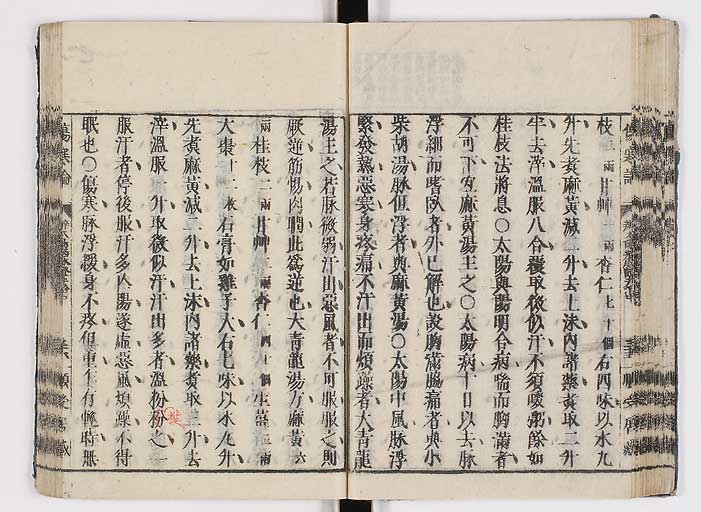 枝二兩甘艸一兩杏仁七十個右四味以水九
升先煮麻黃減二升去上沫內諸藥煮取二升
半去滓溫服八合覆取微似汗不須啜粥餘如
桂枝法將息○太陽與陽明合病喘而胸滿者
不可下宜麻黃湯主之○太陽病十日以去脉
浮細而嗜臥者外已解也設胸滿脇痛者與小
柴胡湯脉但浮者與麻黃湯○太陽中風脉浮
緊發熱惡寒身疼痛不汗出而煩躁者大青龍
湯主之若脉微弱汗出惡風者不可服服之則
厥逆筋惕肉瞤此爲逆也大青龍湯方麻黃六
兩桂枝二兩甘艸二兩杏仁四十個生薑三兩
大棗十二枚右膏如雞子大右七味以水九升
先煮麻黃減二升去上沫內諸藥煮取三升去
滓溫服一升取微似汗汗出多者溫粉粉之一
服汗者停後服汗多亾陽遂虛惡風煩躁不得
眠也○傷寒脉浮緩身不疼但重乍有輕時無
傷寒論